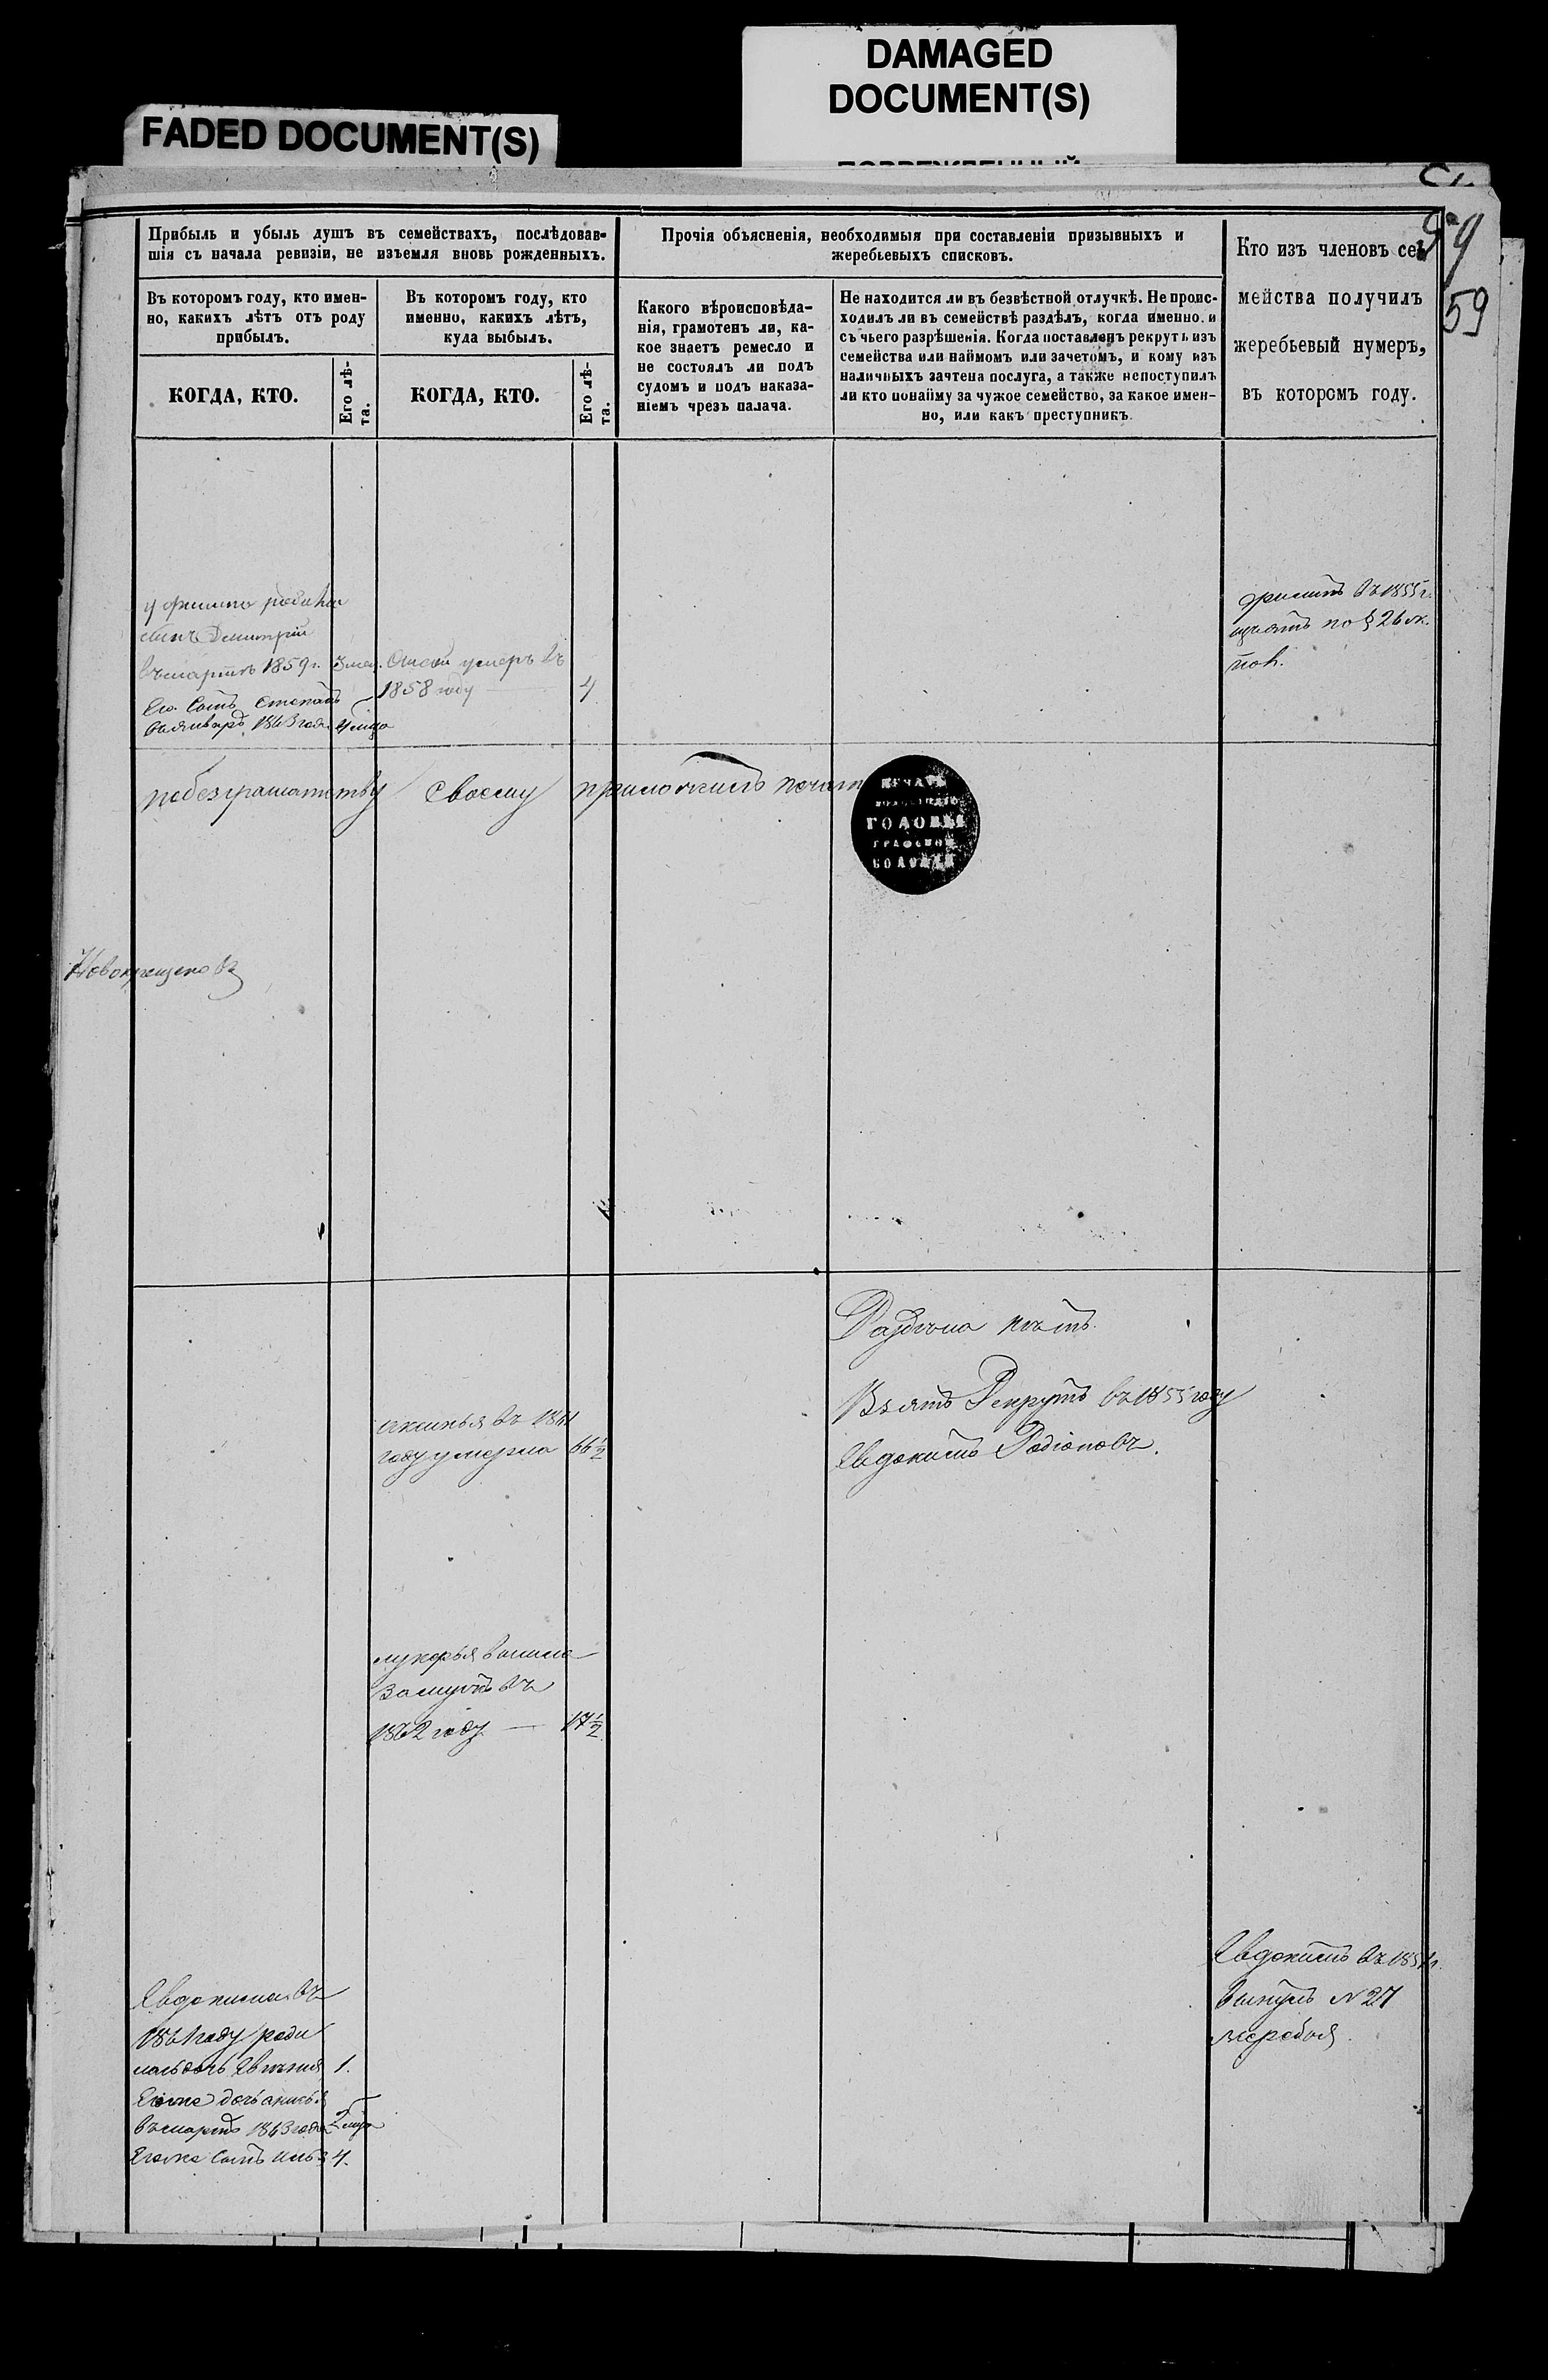 DAMAGED
DOCUMENT(S)
FADED DOCUMENT(S)
59
59
Прибыль и убыль душъ въ семействахъ, послѣдовав-
шія съ начала ревизіи, не изъемля вновь рожденныхъ.
Прочія объясненія, необходимыя при составленіи призывныхъ и
жеребьевыхъ списковъ.
Кто изъ членовъ се-
мейства получилъ
жеребьевый нумеръ,
въ которомъ году.
Въ которомъ году, кто имен-
но, какихъ лѣтъ отъ роду
прибылъ.
Въ которомъ году, кто
именно, какихъ лѣтъ,
куда выбылъ.
Какого вѣроисповѣда-
нія, грамотенъ ли, ка-
кое знаетъ ремесло и
не состоялъ ли подъ
судомъ и подъ наказа-
ніемъ чрезъ палача.
Не находится ли въ безвѣстной отлучкѣ. Не проис-
ходилъ ли въ семействѣ раздѣлъ, когда именно и
съ чьего разрѣшенія. Когда поставленъ рекрутъ изъ
семейства или наймомъ или зачетомъ, и кому изъ
наличныхъ зачтена послуга, а также непоступилъ
ли кто понайму за чужое семейство, за какое имен-
но, или какъ преступникъ.
КОГДА, КТО.
Его лѣ-
та.
КОГДА, КТО.
Его лѣ-
та.
сынъ Дмитрій
въ мартѣ 1859 г. 3 мес.
Его Сынъ Степанъ
въ январѣ 1863 года 4 мца
умеръ въ
1858 году 4
въ 1855 г.
изъятъ по § 26
по безграмотству своему приложилъ печать
ПЕЧАТЬ
ГОЛОВЫ
ВОЛОСТИ
Новокрещеновъ
Раздѣла нѣтъ.
Взятъ Рекрутъ въ 1855 году
Евдокимъ Родіоновъ.
аксинья въ 1861
году умерла 66 1/2
лукерья вышла
Замужъ въ
1862 году 17 1/2
Евдокимъ въ 1854 г.
вынулъ N 27
жеребья.
Евдокима въ
1861 году роди
лась дочь Евгения 1.
Егоже дочь анисья
въ мартѣ 1863 года 2 мца
Егоже Сынъ 4.